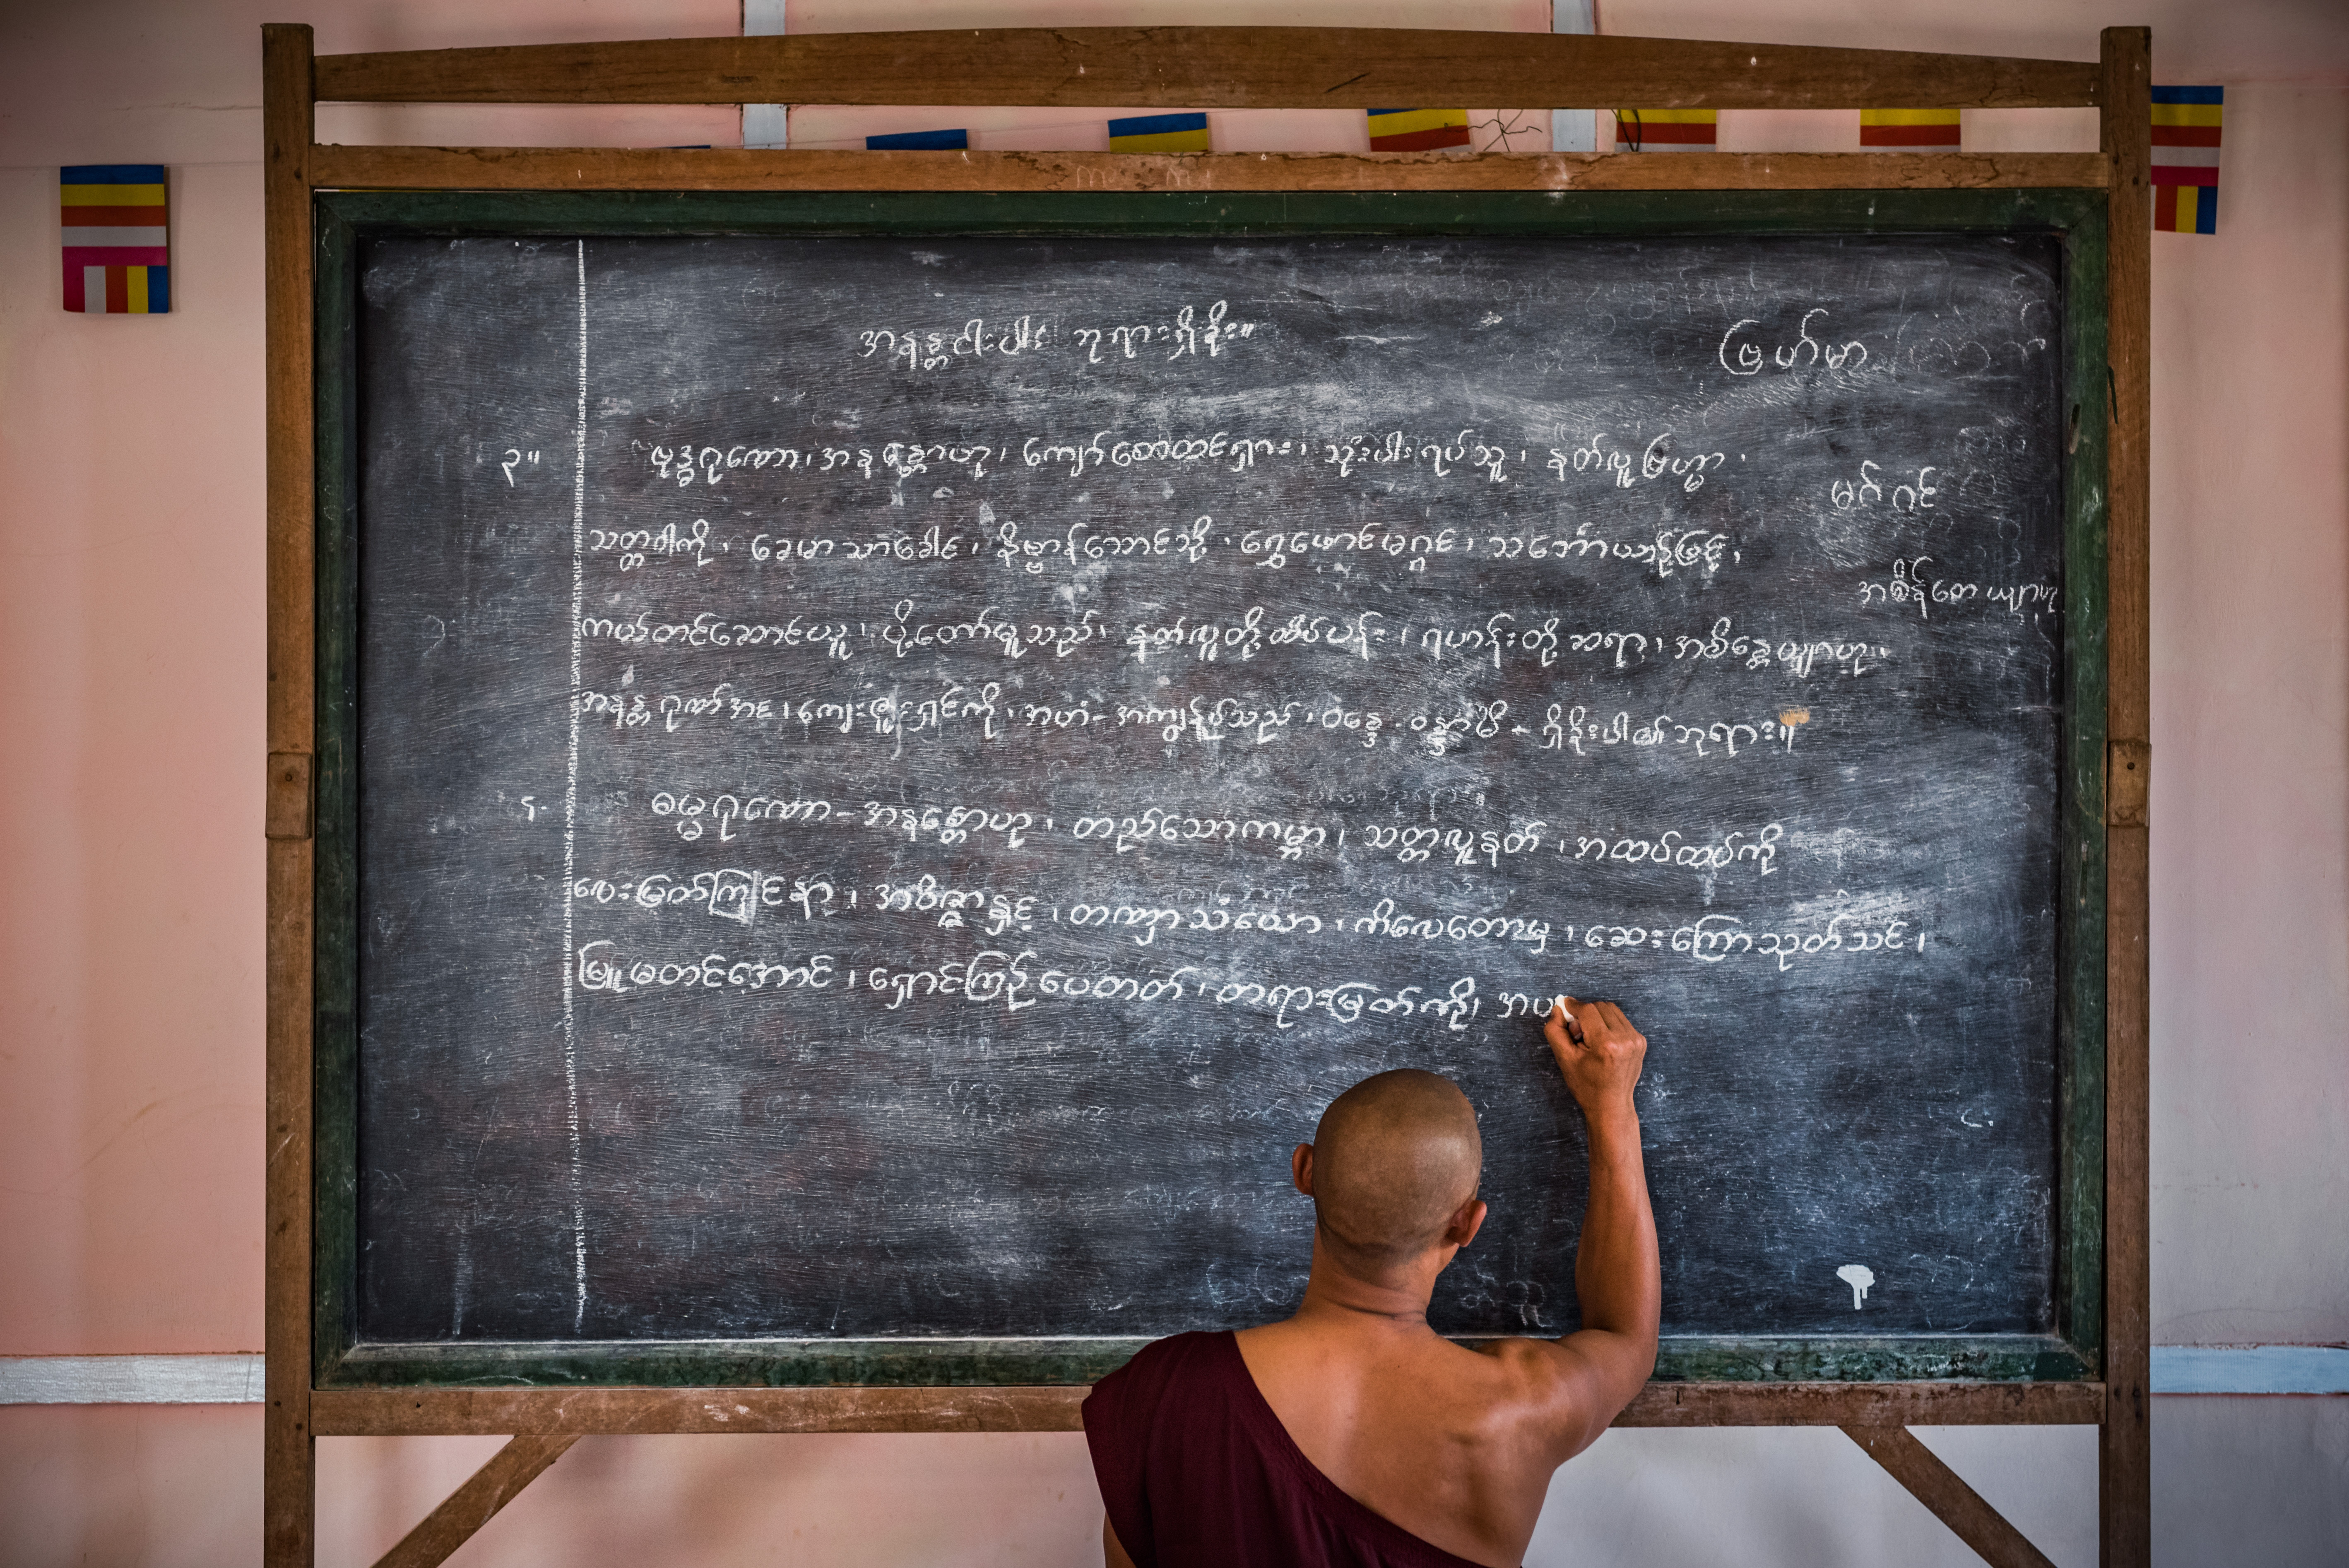 အနန္တငါးပါး ဘုရားရှိခိုး။
ဗြဟ်မာ
၃။ ဗုဒ္ဓဂုဏော၊ အနန္တောဟု၊ ကျော်စောထင်ရှား၊ သုံးပါးရပ်သူ၊ နတ်လူဗြဟ္မာ၊
မဂ်ဂင်
သတ္တဝါကို၊ ခေမာသာခေါင်၊ နိဗ္ဗာန်ဘောင်သို့၊ ရွှေဖောင်မဂ္ဂင်၊ သင်္ဘောယာဉ်ဖြင့်၊
အစိန်တေယျာဟု
ကယ်တင်ဆောင်ယူ၊ ပို့တော်မူသည်၊ နတ်လူတို့ထိပ်ပန်း၊ ရဟန်းတို့ဆရာ၊ အစိန္တေယျာဟု၊
အနန္တဂုဏ်အင်၊ ကျေးဇူးရှင်ကို၊ အဟံ-အကျွန်ုပ်သည်၊ ဝန္ဒေ၊ ဝန္ဒာမိ - ရှိခိုးပါ၏ဘုရား။
၄- ဓမ္မဂုဏော-အနန္တောဟု၊ တည်သောကမ္ဘာ၊ သတ္တလူနတ်၊ အထပ်ထပ်ကို
လေးမြက်ကြိုင်နာ၊ အဝိဇ္ဇာနှင့်၊ တဏှာသံယော၊ ကိလေတောမှ၊ ဆေးကြောသုတ်သင်၊
မြူမတင်အောင်၊ ရှောင်ကြဉ်ပေတတ်၊ တရားမြတ်ကို၊ အပ